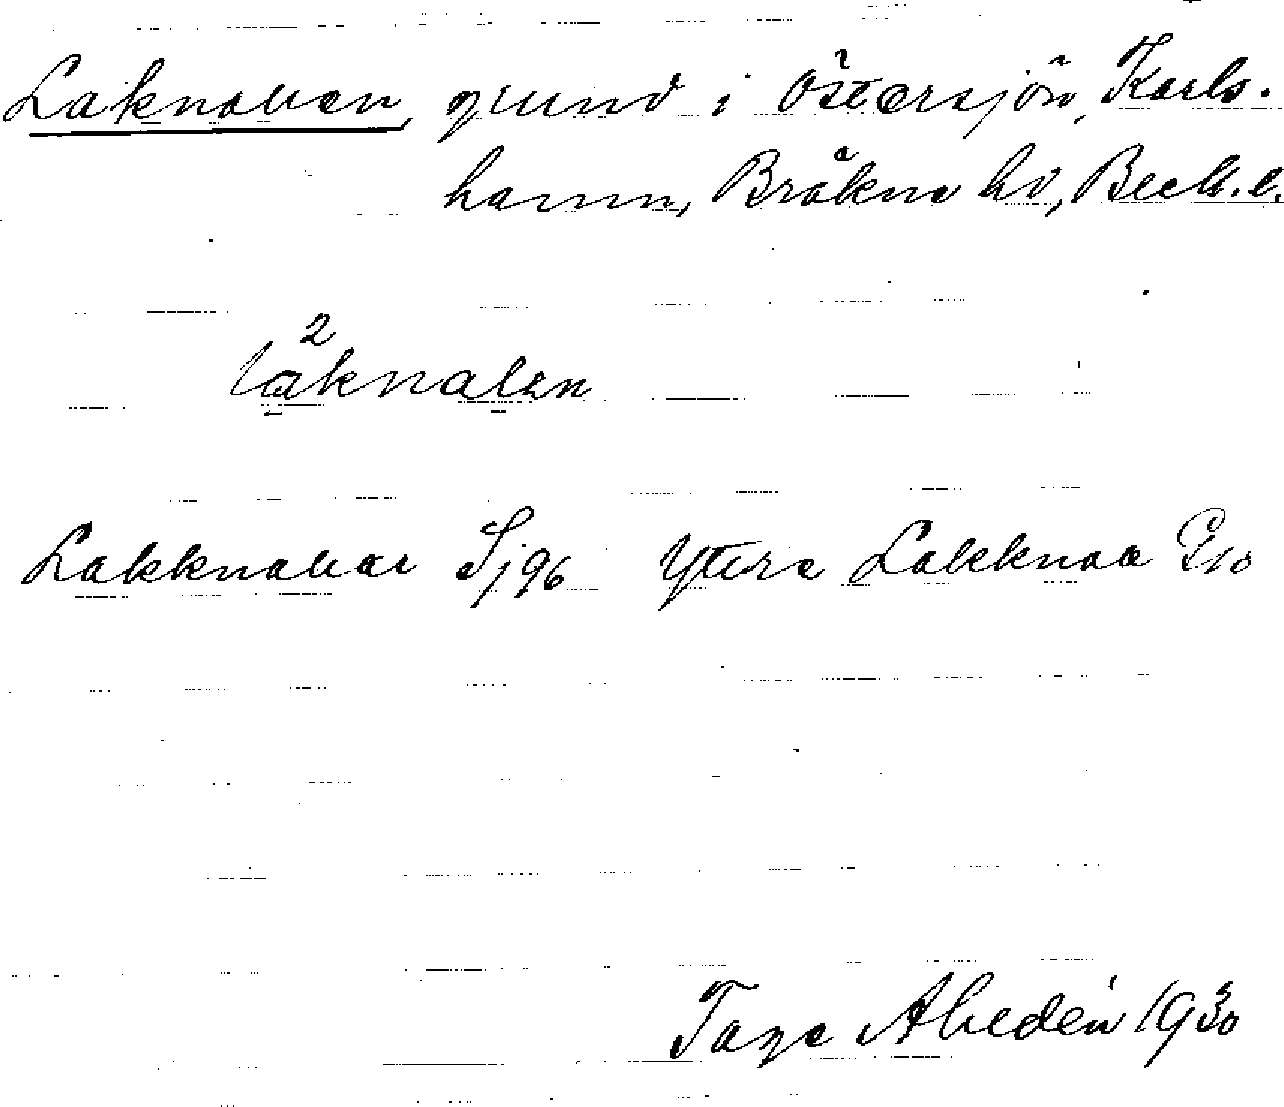 Laknaven, grund i Östersjön, Karls-
hamn, Bräkne hd, Blek. l.
2
Lakknavar Sj 96 Yttre Lakknaa
Tage Ahldén 1930